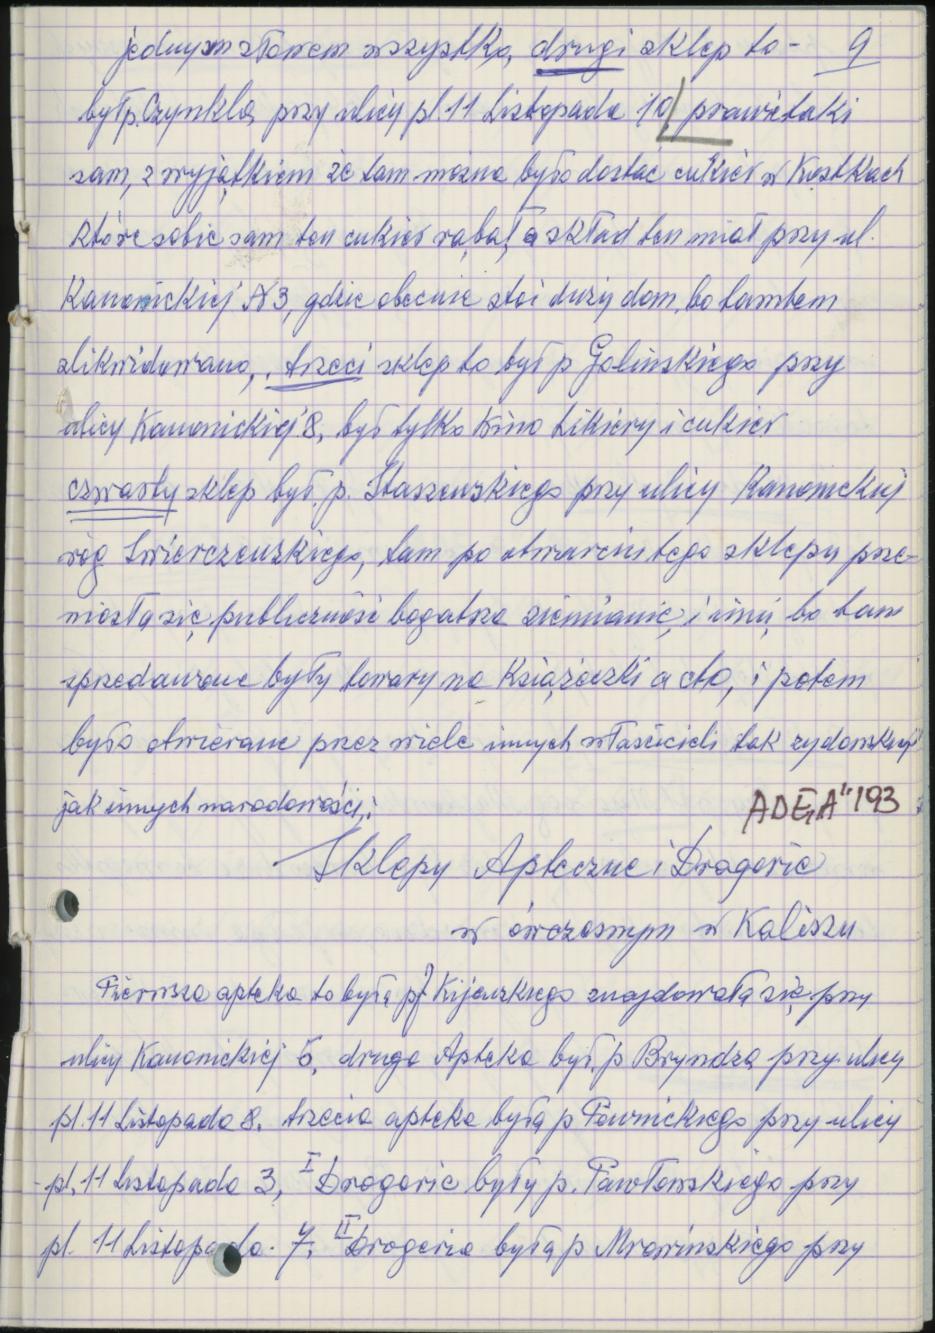 jednym słowem wszystko, drugi sklep to - 9
był p. Czynkla, przy ulicy pl. 11 Listopada 10, prawie taki
sam, z wyjątkiem że tam można było dostać cukier w Kostkach
które sobie sam ten cukier rąbał, a skład ten miał przy ul.
Kanonickiej N 3, gdzie obecnie stoi duży dom, bo tamtem
zlikwidowano, trzeci sklep to był p Golińskiego przy
ulicy Kanonickiej 8, był tylko Wino Likiery i cukier
czwarty sklep był p. Staszewskiego przy ulicy Kanonickiej
róg Świerczewskiego, tam po otwarciu tego sklepu prze-
niosła się publiczność bogatsza ziemianie, i inni, bo tam
sprzedawane były towary na Książeczki a cto, i potem
było otwierane przez wiele innych właścicieli tak żydowskiej
jak innych narodowości,
ADEĄA" 193
Sklepy Apteczne i Drogerie
w ówczesnym w Kaliszu
Pierwsza apteka to była p. Kijewskiego znajdowała się przy
ulicy Kanonickiej 6, druga Apteka był, p Bryndza, przy ulicy
pl. 11 Listopada 8. trzecia apteka była p Pawnickiego przy ulicy
pl. 11 Listopada 3, I Drogerie były p. Pawłowskiego przy
pl. 11 Listopada. 7, II Drogeria była p Mrowińskiego przy